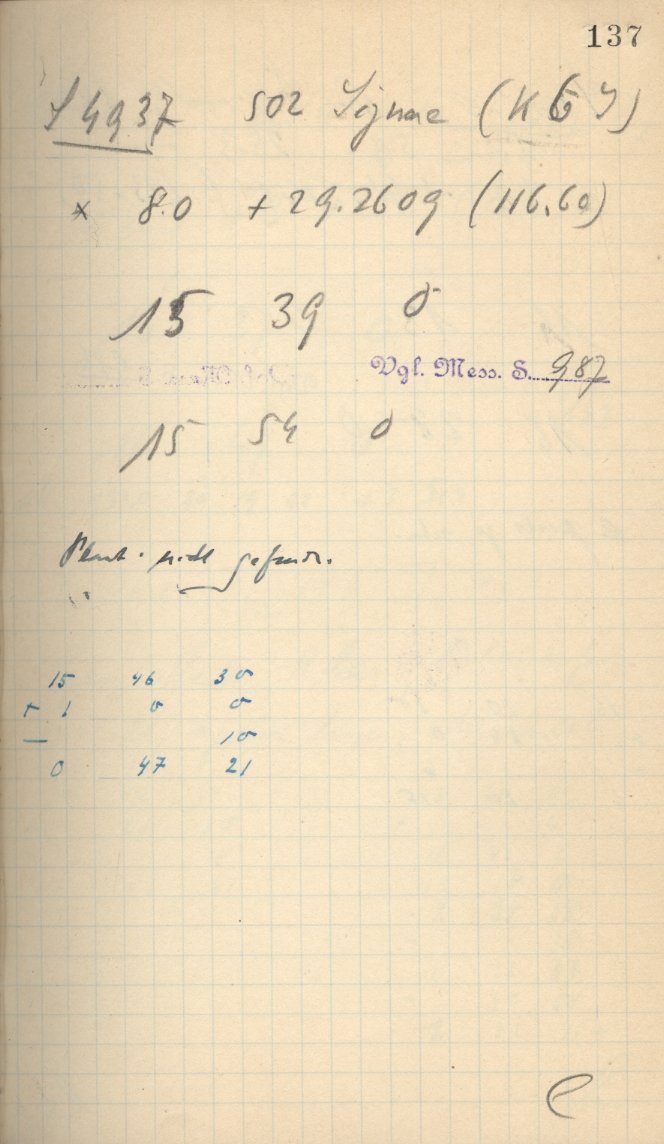 137
S 4937 502 Sigune (K G J)
* 8.0 + 29.2609 (116.60)
15 39 0
Vgl. Mess. S. 987
15 54 0
Plant. nicht gefund.
15 46 30
+ 1 0 0
— 10
0 47 21
e